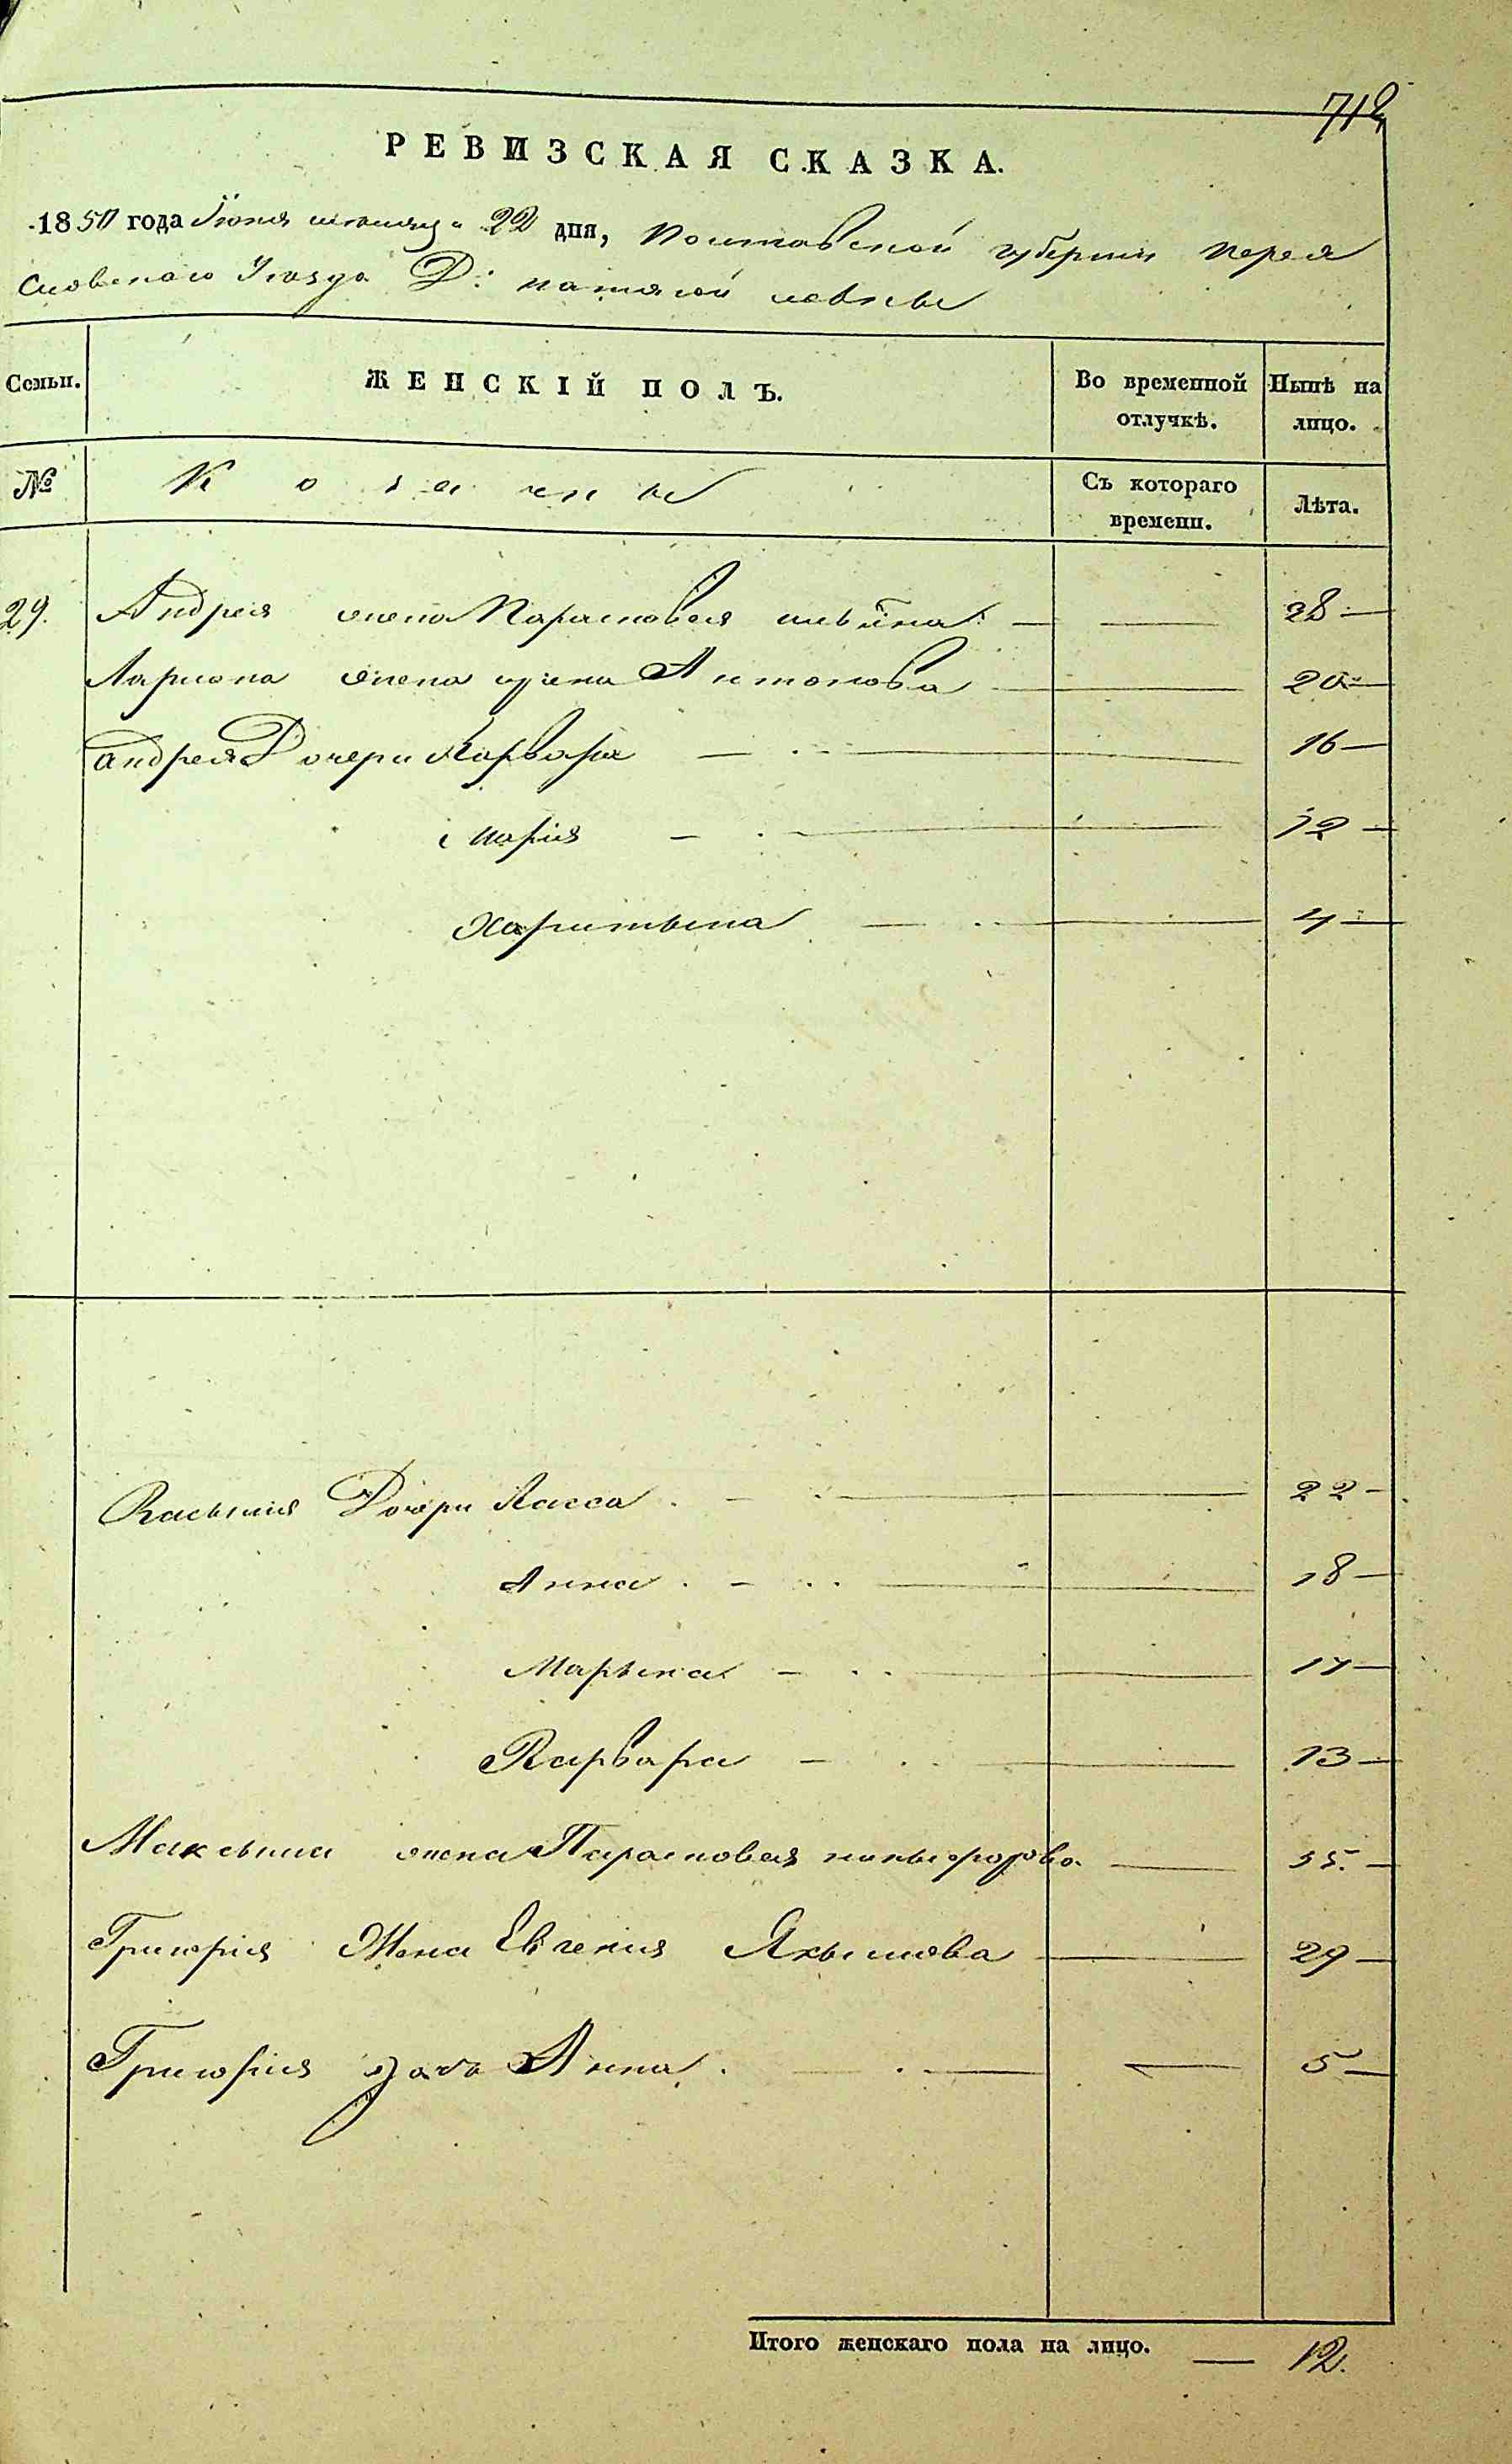 712
РЕВИЗСКАЯ СКАЗКА.
1850 года Июня месяца 22 дня, Полтавской губернии Перея
славского Уезда Д:
Семьи. ЖЕНСКІЙ ПОЛЪ. Во временной отлучкѣ. Нынѣ на лицо.
№ Козачкы Съ котораго времени. Лѣта.
29. Андрея жена Парасковея — — 38 —
Лариона жена Антонова — 20 —
Андрея Дочери Варвара — 16 —
Марія — 12 —
Харитына — 4 —
Василия Дочери 22 —
Анна — 18 —
Марына — 17 —
Варвара — 13 —
Максыма жена Парасковея Никыфорова — 35. —
Григорія Жена Евгения Якымова — 29 —
Григорія дочь Анна — — 5 —
Итого женскаго пола на лицо. — 12.